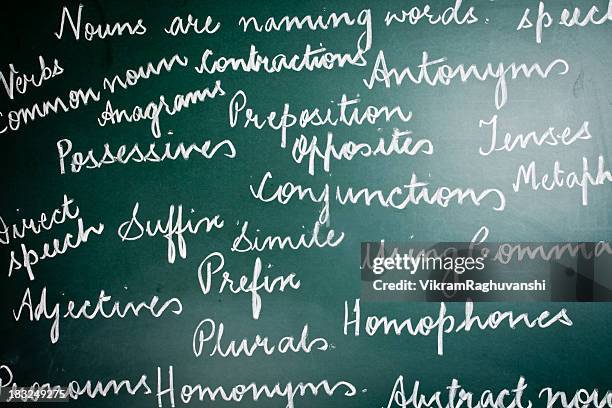 Nouns are naming words. speech
Verbs
Common noun Contractions Antonyms
Anagrams Preposition Tenses
Possessives Opposites
Conjunctions Metaph
Direct speech Suffix Simile Using Comma
gettyimages
Credit: VikramRaghuvanshi
Prefix
Adjectives Plurals Homophones
Pronouns Homonyms. Abstract noun
183249275